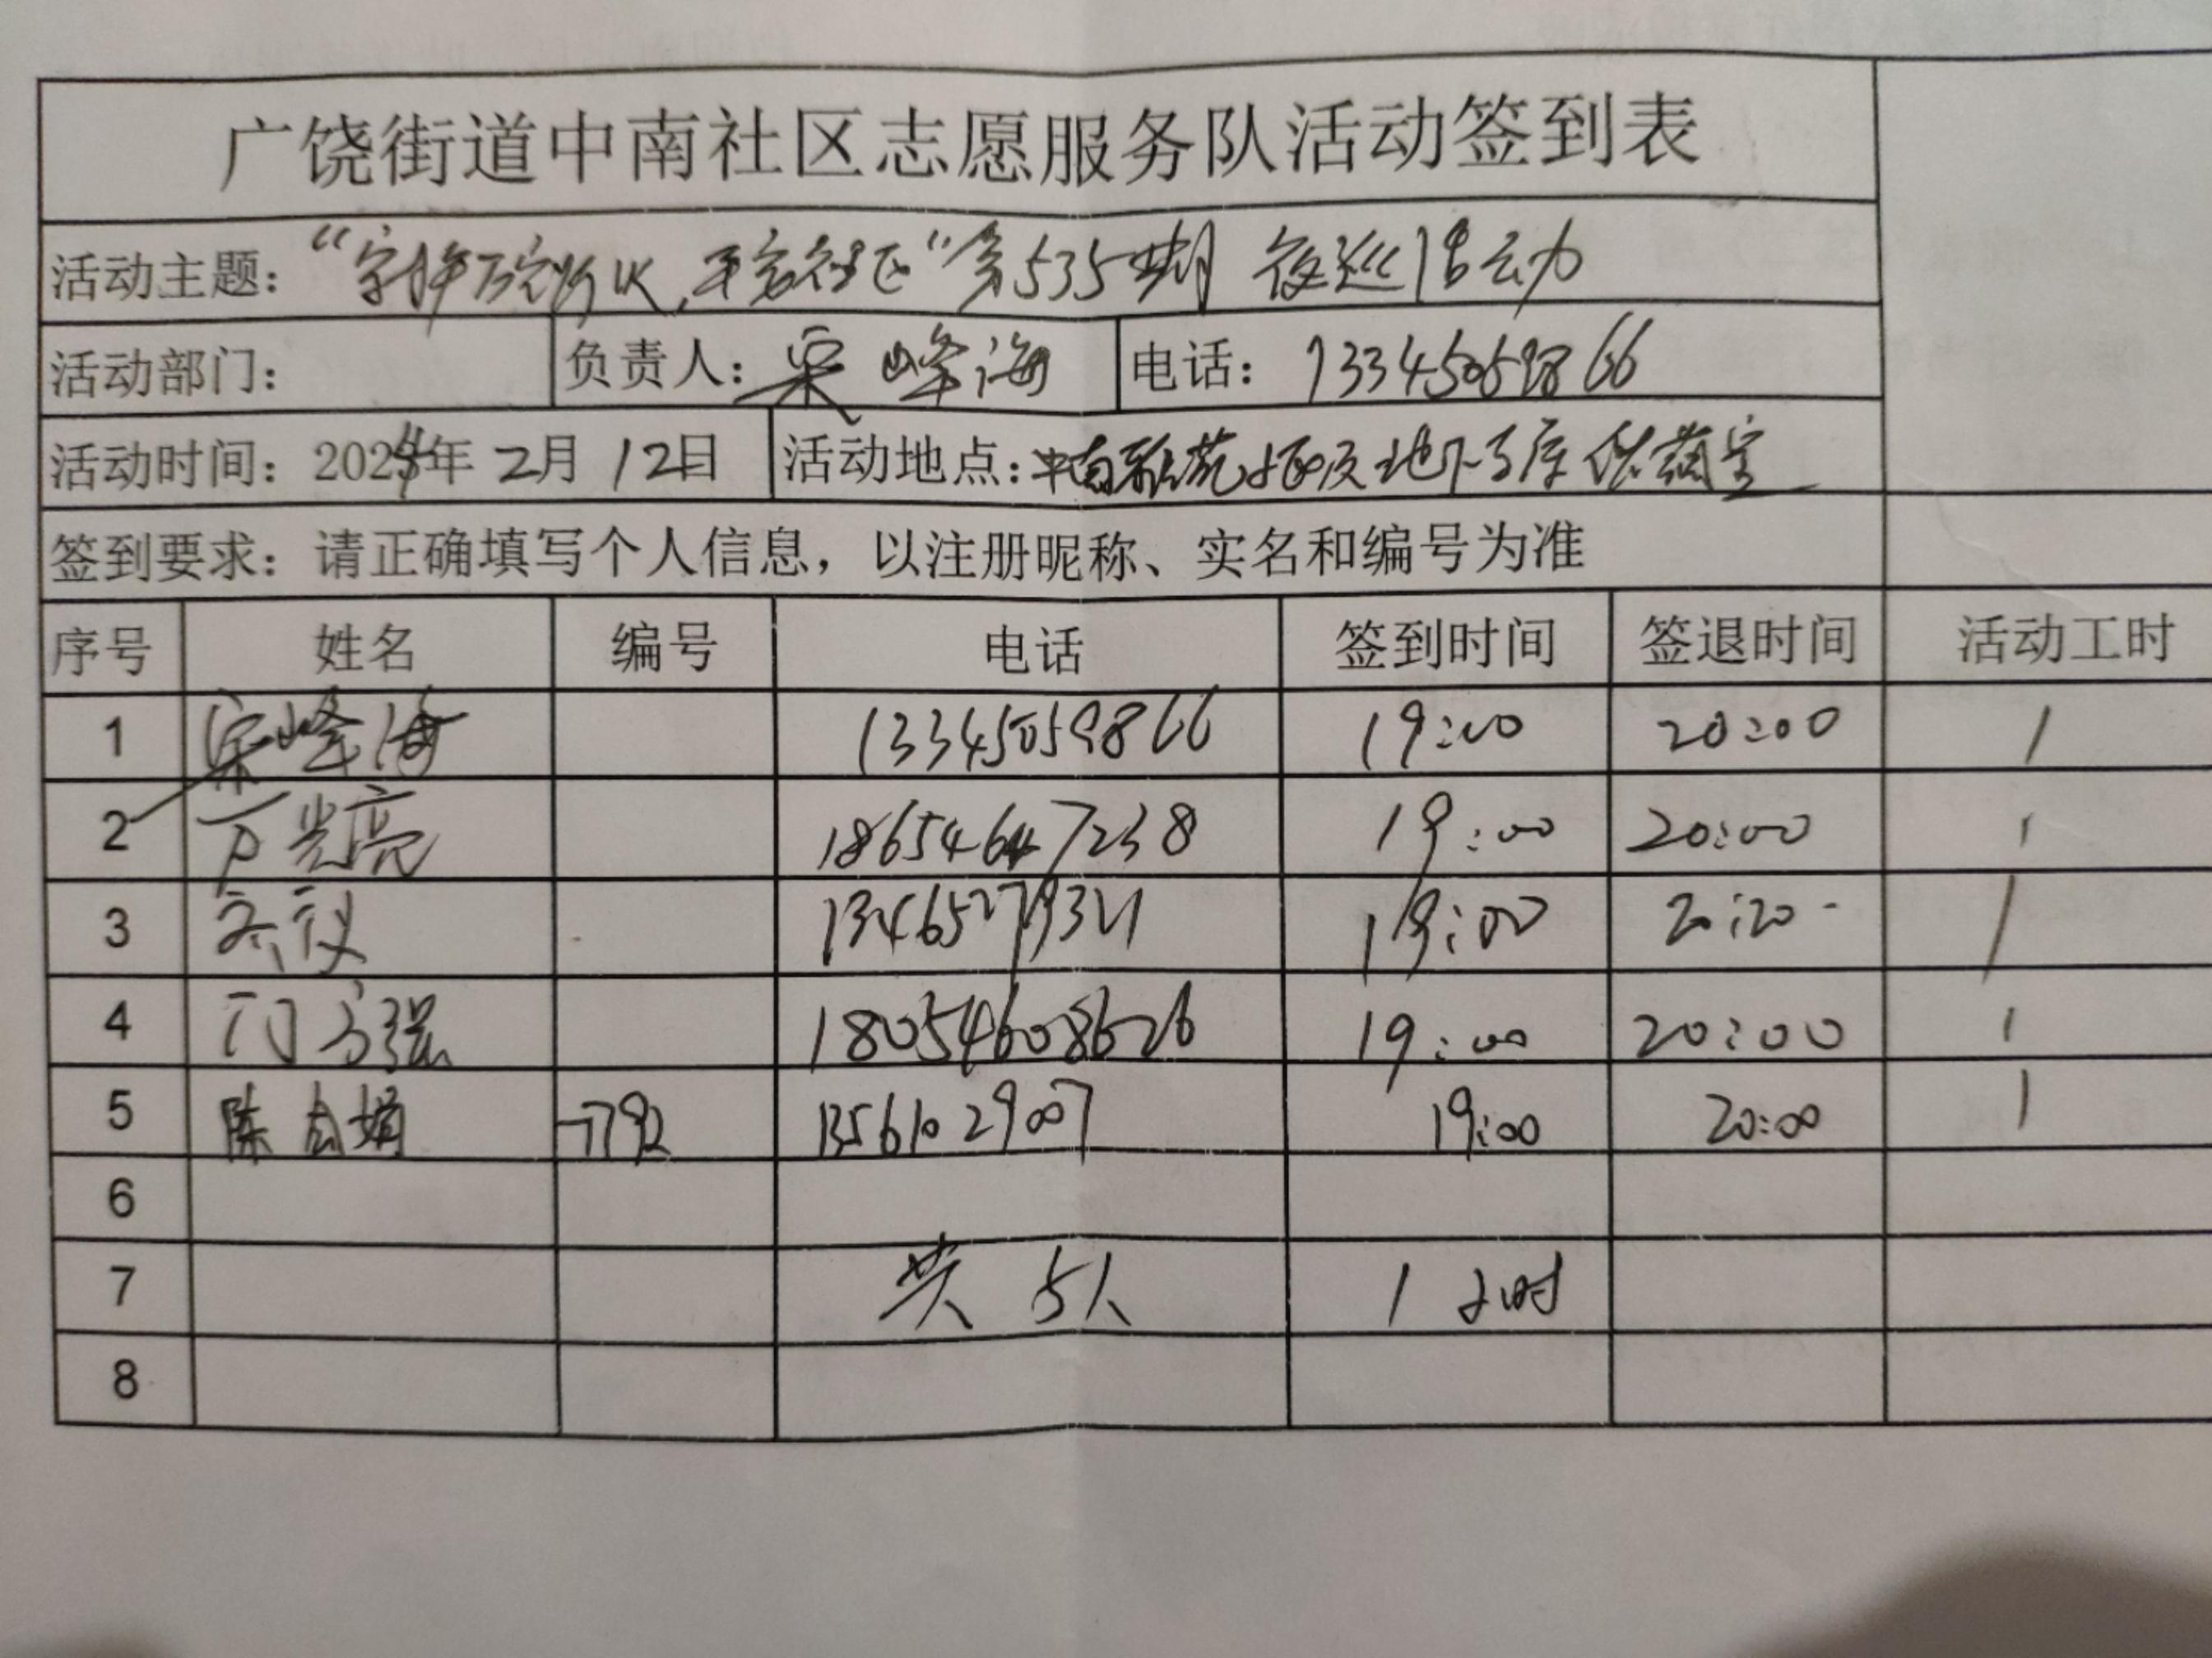 广饶街道中南社区志愿服务队活动签到表
活动主题：“守护万家灯火，平安社区”第535期 夜巡活动
活动部门： 负责人：宋峰海 电话：13345059866
活动时间：2024年2月12日 活动地点：中南雅苑 地下车库
签到要求：请正确填写个人信息，以注册昵称、实名和编号为准
序号 姓名 编号 电话 签到时间 签退时间 活动工时
1 宋峰海 13345059866 19:00 20:00 1
2 光亮 18654647238 19:00 20:00 1
3 13465279321 19:00 20:20 1
4 门 强 18054608626 19:00 20:00 1
5 陈 娟 7792 13561029007 19:00 20:00 1
6
7 共 5人 1 小时
8